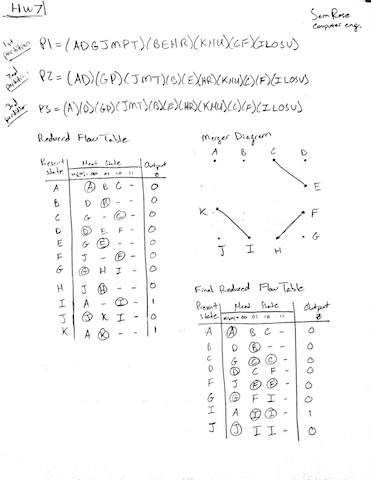 HW7
Sam Rose
computer engr.
1st partition P1 = (ADGJMPT)(BEHR)(KNU)(CF)(ILOSV)
2nd partition P2 = (AD)(GP)(JMT)(B)(E)(HR)(KNU)(C)(F)(ILOSV)
3rd partition P3 = (A)(D)(GP)(JMT)(B)(E)(HR)(KNU)(C)(F)(ILOSV)
Reduced Flow Table
Present state Next State Output
00 01 10 11 Z
A A B C - 0
B D B - - 0
C G - C - 0
D D E F - 0
E G E - - 0
F J - F - 0
G G H I - 0
H J H - - 0
I A - I - 1
J J K I - 0
K A K - - 1
Merger Diagram
A B C D
E
K F
G
J I H
Final Reduced Flow Table
Present State Next State Output
00 01 10 11 Z
A A B C - 0
B D B - - 0
C G C C - 0
D D C F - 0
F J F F - 0
G G F I - 0
I A I I - 1
J J I I - 0